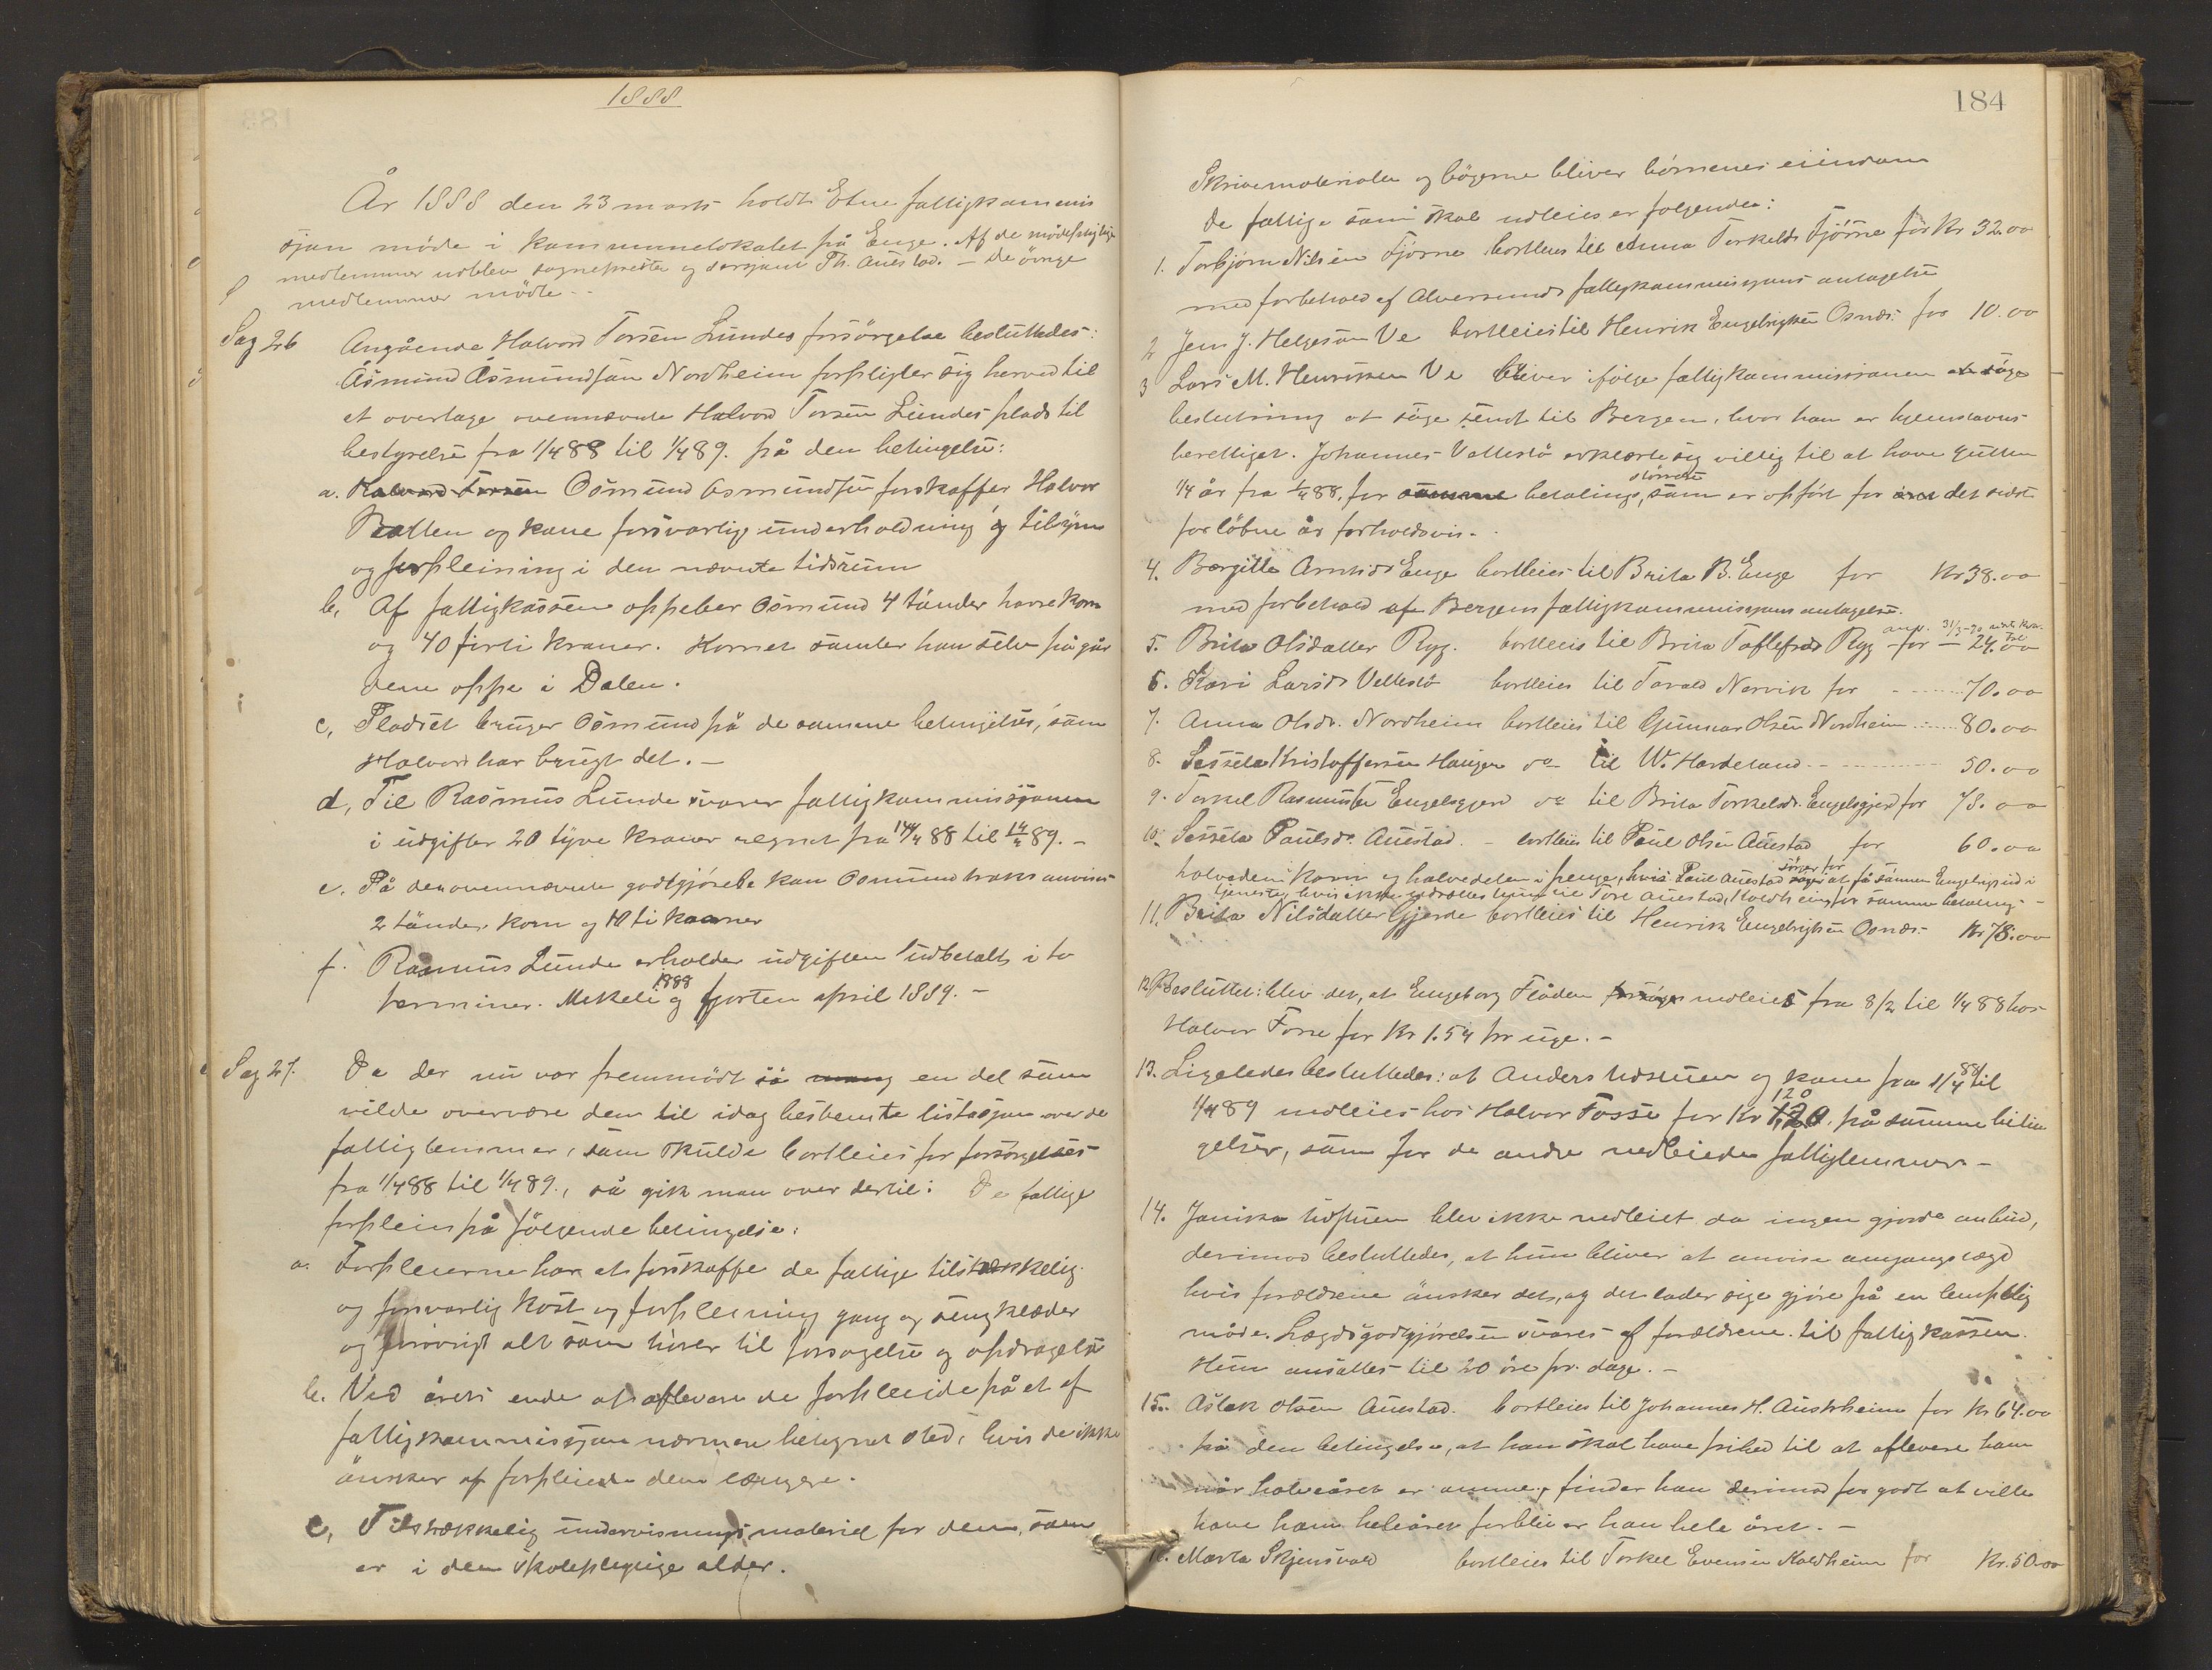 1888
År 1888 den 23 marts holdt Etne fattigkommis
sjon møde i kommunelokalet på Enge. Af de mødepligtige
medlemmer udblev sogneprester og sersjant Th. Auestad. – De øvrige
medlemmer mødte –
Sag 26 Angående Halvor Torsen Lundes forsørgelse besluttedes:
Åsmund Åsmundsen Nordheim forpligter sig herved til
at overtage ovennævnte Halvor Torsen Lundes plads til
bestyrelse fra 1/4 88 til 1/4 89. på den betingelse:
a. Halvard Torsen Osmund Osmundsen forskaffer Halvor
Bratten og kone forsvarlig underholdning og tilsyn
og forpleining i den nævnte tidsrum
b, Af fattigkassen oppeber Osmund 4 tønder havrekorn
og 40 førti kroner. Kornet samler han selv på går
dene oppe i Dalen.
c, Pladset bruger Osmund på de samme betingelser, som
Halvor har brugt det. –
d, Til Rasmus Lunde svarer fattigkommissjonen
i udgifter 20 tyve kroner regnet fra 14/4 88 til 14/4 89. –
e. På den ovennævnte godtgjørelse kan Osmund straks anvises
2 tønder korn og 10 ti kroner
f. Rasmus Lunde erholder udgiften udbetalt i to
terminer. Mekeli 1888 og fjorten april 1889. –
Sag 27. Da der nu var fremmødt så mang en del som
vilde overvære den til idag bestemte lisitasjon over de
fattiglemmer, som skulde bortleies for forsørgelses
fra 1/4 88 til 1/4 89., så gik man over dertil: De fattige
forpleies på følgende betingelse:
a. Forpleierne har at forskaffe de fattige tilstrækkelig
og forsvarlig kost og forpleining gang og sengklæder
og forøvrigt alt som hører til forsørgelse og opdragelse
b. Ved årets ende at aflevere de forpleiede på et af
fattigkommissjonen nærmere betegnet sted, hvis de ikke
ønsker at forpleie dem længere.
c, Tilstrækkelig undervisningsmateriel for dem, som
er i den skolepligtige alder.
184
Skrivematerialer og bøgerne bliver børnenes eiendom
De fattige som skal udleies er følgende:
1. Torbjørn Nilsen Fjørne bortleies til Anna Torkelds Fjørne for Kr 32.00
med forbehold af Alversunds fattigkommissjons antagelse
2 Jens J. Helgesen Ve bortleies til Henrik Engebrigtsen Osnes. for 10.00
3 Lars M. Henriksen Ve bliver ifølge fattigkommissionen at søge
beslutning at søge sendt til Bergen, hvor han er hjemstavns
berettiget. Johannes Vallestø erklærte sig villig til at have gutten
1/4 år fra 1/4 88, for samme større betaling, som er opført for året det sidst
forløbne år forholdsvis. –
4. Børgitte Arnesd Enge bortleies til Brita B. Enge for Kr 38.00
med forbehold af Bergens fattigkommissjons antagelse.
5. Brita Olsdatter Ryg. bortleies til Brita Toflefsd Ryg for – 24.00
6. Kari Larsd Vallestø bortleies til Tarald Narvik for – 70.00
7. Anna Olsd. Nordheim bortleies til Gunnar Olsen Nordheim 80.00
8. Sessela Kristoffersen Haugen do til W. Hardeland – 50.00
9. Torkel Rasmussen Engelsgjerd do til Brita Torkelsd. Engelsgjerd for 73.00
10. Sessela Paulsd. Auestad. – bortleies til Paul Olsen Auestad for 60.00
halvedelen i korn og halvedelen i penge, hvis Paul Auestad sørger for at få sønnen Engebrigt ud i
tjeneste, hvis ikke udsættes hun til Tore Auestad, Koldheim for samme betaling –
11. Brita Nilsdatter Gjerde bortleies til Henrik Engebrigtsen Osnes. – Kr 78.00
12. Besluttet: blev det, at Engeborg Flåden forsørges indleies fra 8/2 til 1/4 88 hos
Halvor Fosse for Kr 1.54 pr uge. –
13. Ligeledes besluttedes: at Anders Udstuen og kone fra 1/4 88 til
1/4 89 indleies hos Halvor Fosse for Kr 120 på samme betin
gelser, som for de andre indleiede fattiglemmer –
14. Janika Udstuen blev ikke indleiet da ingen gjorde anbud,
derimod besluttedes, at hun bliver at anvise omgangslægd
hvis forældrene ønsker det, og det lader sige gjøre på en lempelig
måde. Lægdsgodtgjørelsen svares af forældrene til fattigkassen.
Hun ansættes til 20 øre pr. dage. –
15. Aslak Olsen Auestad. bortleies til Johannes H. Austrheim for Kr 64.00
på den betingelse, at han skal have frihed til at aflevere ham
når halvåret er omme, finder han derimod for godt at ville
have ham heleåret forbliver han hele året. –
16. Marta Skjensvold bortleies til Torkel Evensen Koldheim for Kr. 50.00